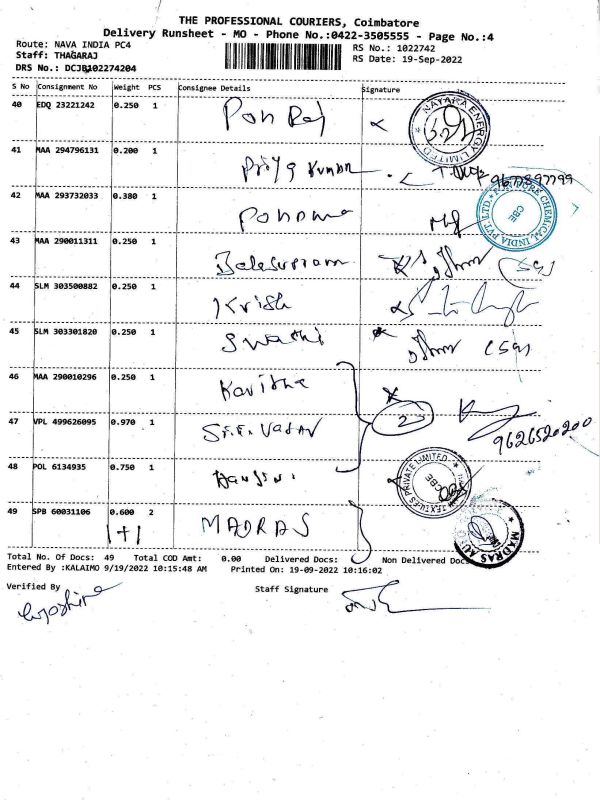 THE PROFESSIONAL COURIERS, Coimbatore
Delivery Runsheet - MO - Phone No.:0422-3505555 - Page No.:4
Route: NAVA INDIA PC4
Staff: THAGARAJ
DRS No.: DCJB102274204
RS No.: 1022742
RS Date: 19-Sep-2022
S No Consignment No Weight PCS Consignee Details Signature
40 EDQ 23221242 0.250 1 Pon Raj
NAYARA ENERGY LIMITED
41 MAA 294796131 0.200 1 Priya Kumar
42 MAA 293732033 0.380 1
CHEMICAL INDIA PVT. LTD. CBE
43 MAA 290011311 0.250 1
44 SLM 303500882 0.250 1 Krish
45 SLM 303301820 0.250 1 Swathi
46 MAA 290010296 0.250 1 Kavitha
47 VPL 499626095 0.970 1 2
9626520200
48 POL 6134935 0.750 1
TEXTILES PRIVATE LIMITED CBE
49 SPB 60031106 0.600 2 MADRAS
1+1
MADRAS
Total No. Of Docs: 49 Total COD Amt: 0.00 Delivered Docs: Non Delivered Docs
Entered By :KALAIMO 9/19/2022 10:15:48 AM Printed On: 19-09-2022 10:16:02
Verified By Staff Signature